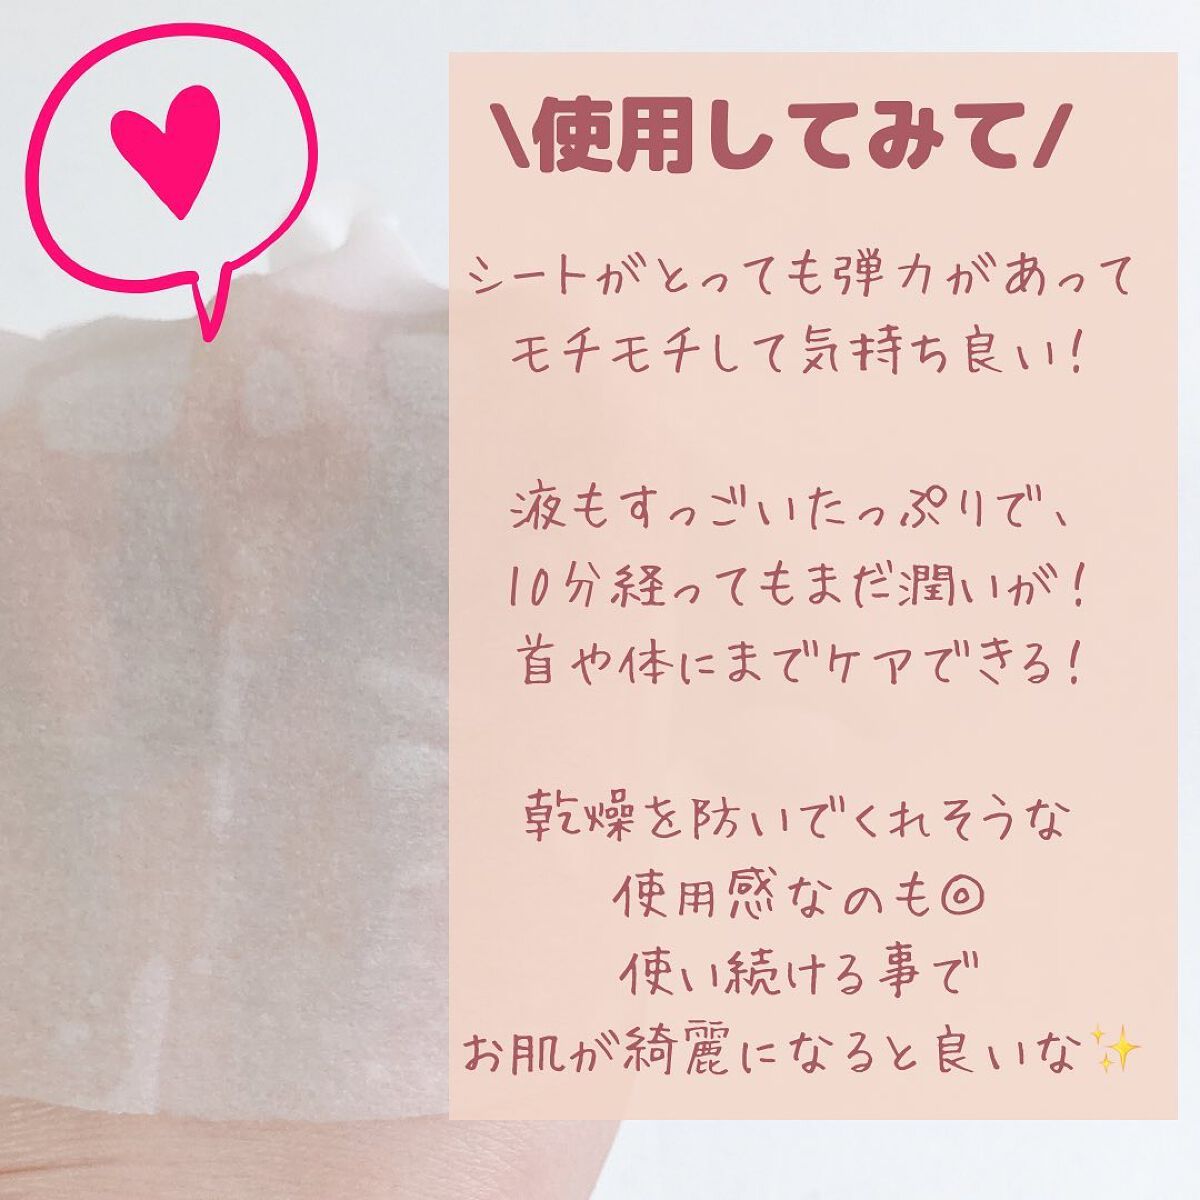 \使用してみて/
シートがとっても弾力があって
モチモチして気持ち良い!
液もすっごいたっぷりで、
10分経ってもまだ潤いが!
首や体にまでケアできる!
乾燥を防いでくれそうな
使用感なのも◎
使い続ける事で
お肌が綺麗になると良いな✨